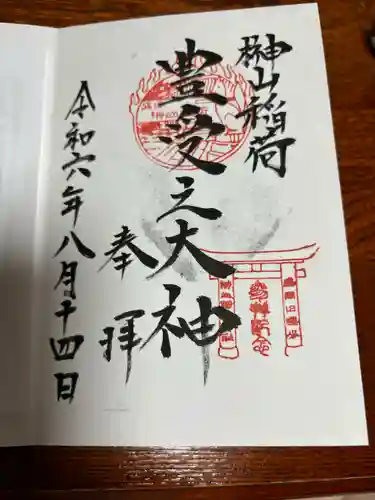 榊山稲荷
豊受之大神
奉拝
令和六年八月十四日